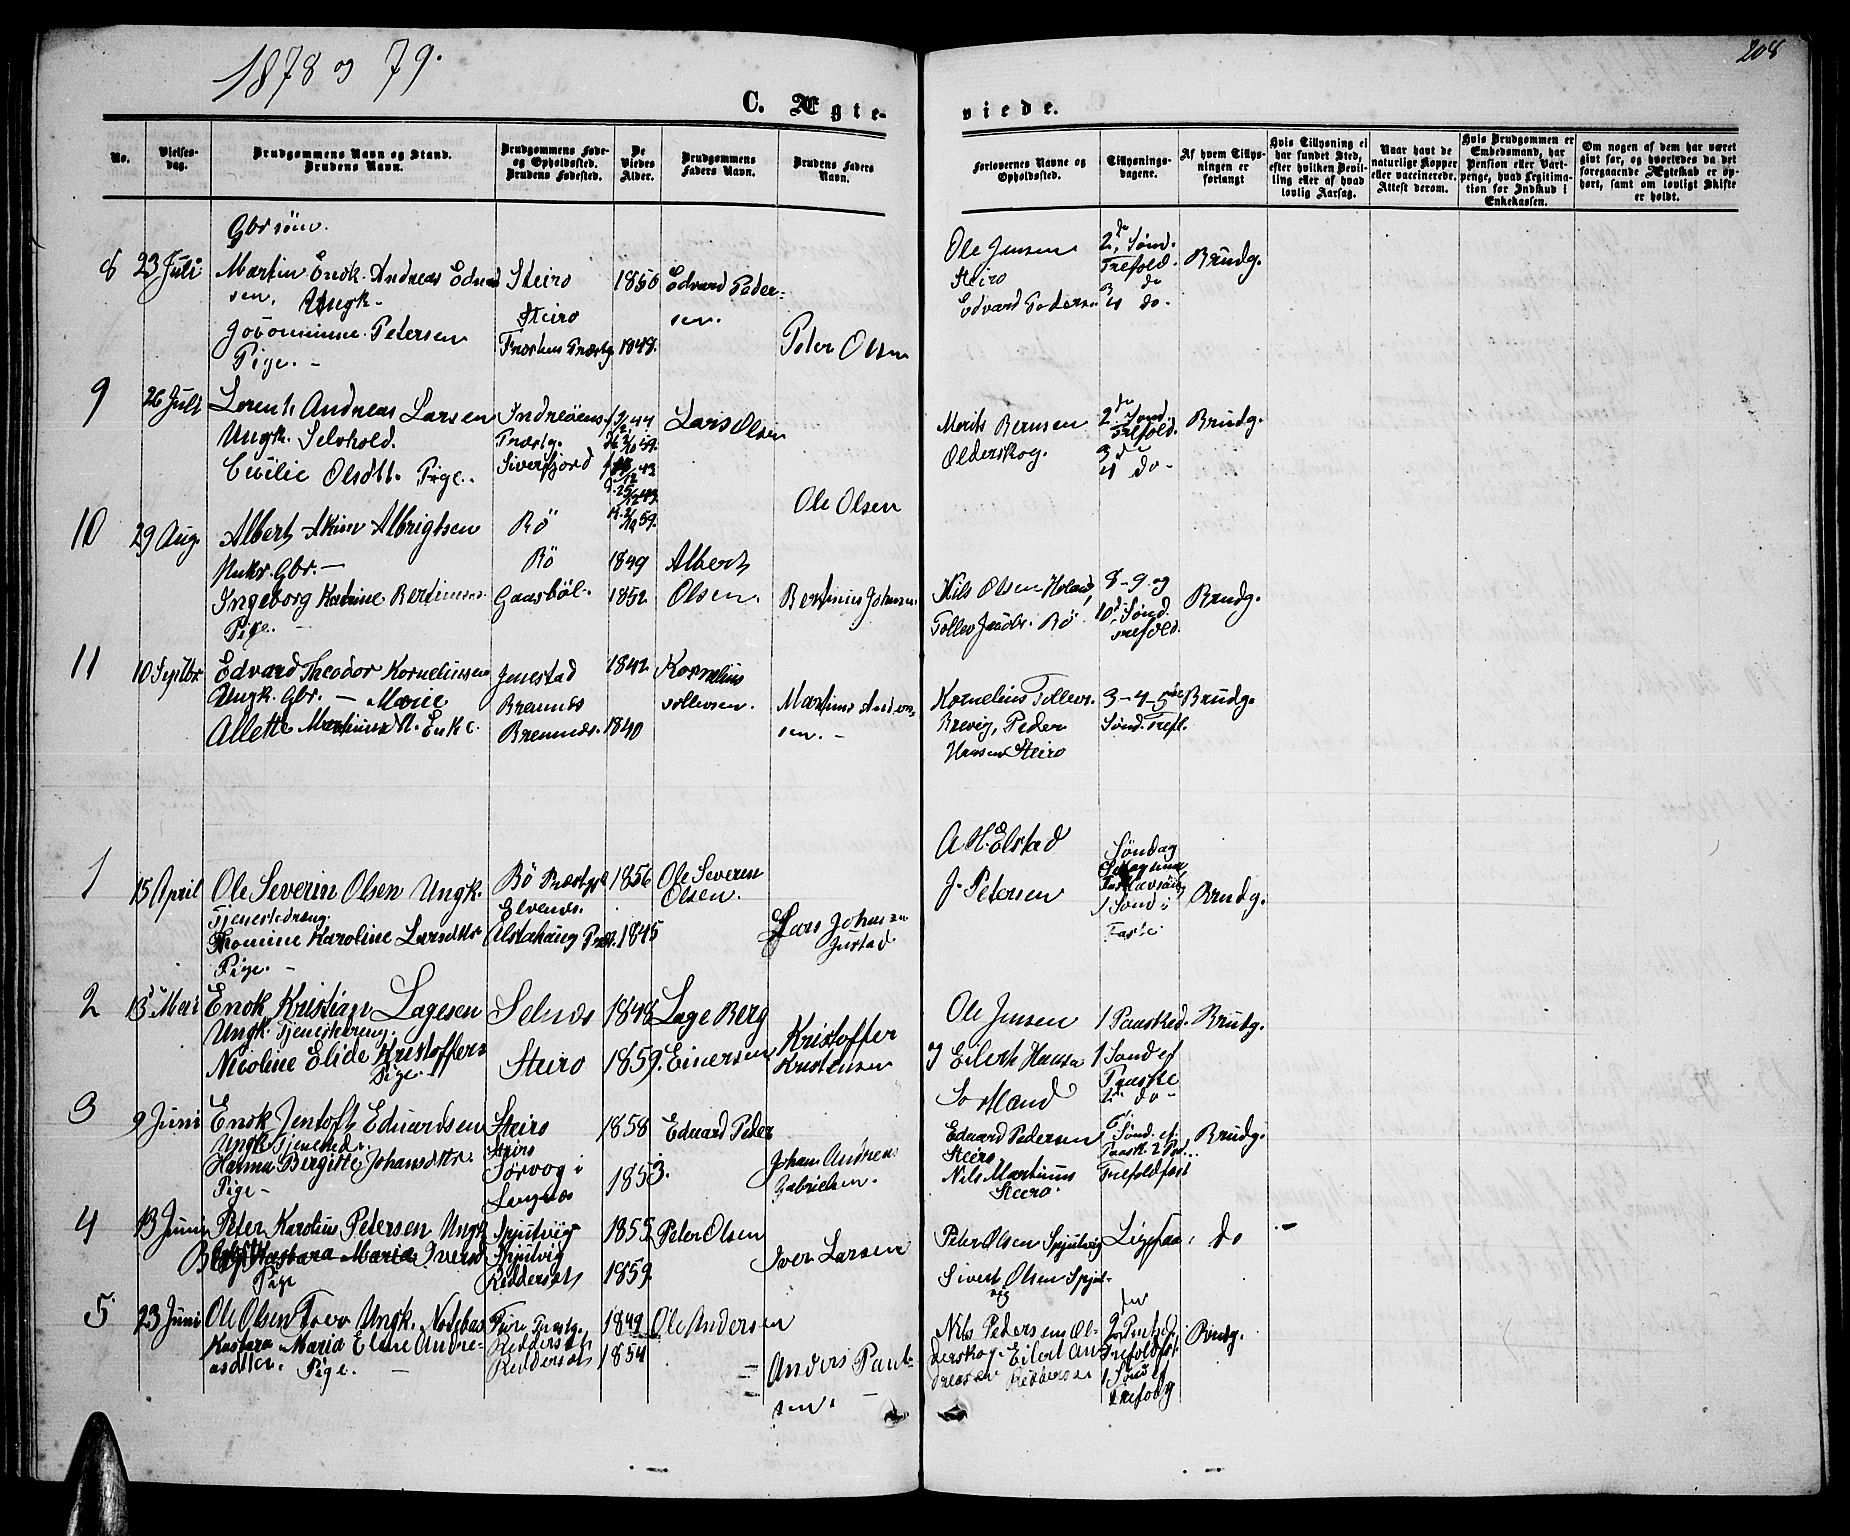 1878 og 79.
208
C. Ægte-
viede.
No.
Vielses-
dag.
Brudgommens Navn og Stand.
Brudens Navn.
Brudgommens Føde-
og Opholdssted.
Brudens Fødested.
De
Viedes
Alder.
Brudgommens
Faders Navn.
Brudens Faders
Navn.
Forlovernes Navne og
Opholdssted.
Tillysnings-
dagene.
Af hvem Tillys-
ningen er
forlangt
Hvis Tillysning ei
har fundet Sted,
efter hvilken Bevil-
ling eller af hvad
lovlig Aarsag.
Naar havt de
naturlige Kopper
eller vaccinerede.
Attest derom.
Hvis Brudgommen er
Embedsmand, har
Pension eller Vart-
penge, hvad Legitima-
tion for Indskud i
Enkekassen.
Om nogen af dem har været
gift før, og hvorledes da det
foregaaende Ægteskab er op-
hørt, samt om lovligt Skifte
er holdt.
Gbrsøn.
8 23 Juli Martin Enok Andreas Edvard
sen, Ungk.
Petersen
Pige. -
Steiro
Steiro
1850
1848.
Edvard Peder-
sen.
Peter Olsen
Ole Jensen
Steiro
Edvard Peders.
2de Sønd.
Trefold.
3 do
4 do.
Brudg.
9 26 Juli Lorents Andreas Larsen
Ungk. Selvhold.
Cecilie Olsdtt. Pige.
Indreøens
Præstg.
Sivertfjord
Lars Olsen
Ole Olsen
Morits Bernsen
Olderskog.
2de Sønd.
Trefold.
3 do
4 do-
Brudg.
10 29 Aug. Albert Akim Albrigtsen
Gbr. -
Ingeborg Katrine Bertinus
Pige. -
Bö
Bö
Gaasböl-
1849
1852
Albert
Olsen.
Bertinus Johansen
Nils Olsen Holand,
Tollev Jacobs. Bö
8-9. og
10de Sønd.
Trefold.
Brudg.
11 10 Septbr Edvard Theodor Korneliussen
Ungk. Gbr. - Marie
Allette Martinus D. Enke.
Jenestad
Bremnes
Bremnes.
1842
1840
Kornelius
Tollevsen.
Martinus Anders
sen. -
Kornelius Tollevs.
Brevig, Peder
Hansen Steiro
3-4-5te
Sønd. Trefl.
Brudg.
1 15 April Ole Severin Olsen Ungk.
Tjenestedreng.
Thomine Karoline Larsdttr
Pige. -
Bö Præstgjeld
Elvenes.
Alstahaug Præst.
1856
1845
Ole Severin
Olsen.
Lars Johansen
A. H. Elstad
J. Petersen
Søndag
1 Sønd i
Faste.
Brudg.
2 13 Mai Enok Kristian Lagesen
Ungk. Tjenestedreng.
Nicoline Elide Kristoffers
Pige.
Selnæs
Steiro
1848
1859.
Lage Berg
Einersen
Kristoffer
Kristensen
Ole Jensen
Eilert Hansen
Sortland
1 Paasked.
1 Sønd ef
Paaske
2 do-
Brudg.
3 9 Juni Enok Jentoft Edvardsen
Ungk. Tjenested.
Hanna Bergitte Johansdttr.
Pige -
Steiro
Steiro
Sørvog i
Langnes
1858
1853.
Edvard Peder
Johan Andreas
Gabrielsen.
Edvard Pedersen
Steiro,
Nils Martinus
Steiro.
6 Sønd. ef
Paask. 2 Pd.
Trefoldfest
Brudg.
4 13 Juni Peter Karolius Petersen Ungk
Maria Iversd
Pige
Spjutvig
Spjutvig
Reddersæt
1855
1859
Peter Olsen
Iver Larsen
Peter Olsen Spjutvig
Sivert Olsen Spjut-
vig
Ligesaa
do
5 23 Juni Ole Olsen Ungk.
Maria Elene Andre-
asdtter. Pige. -
Præstg.
Reddersæt
Reddersæt
1849
1854
Ole Andersen
Anders Paul-
sen.
Nils Pedersen Ol-
derskog. Eilert An-
dreasen
2den Pintsd.
Trefoldfest.
1 Sønd ef
Trefold
Brudg.